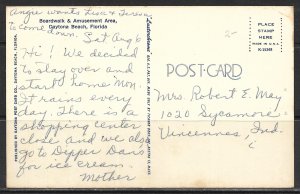 Angie wants Lisa & Teresa
to come down.
Boardwalk & Amusement Area,
Daytona Beach, Florida
Sat Aug 6
Hi! We decided
to stay over and
start home Mon.
It rains every
day. There is a
shopping center
close and we also
go to Dipper Dan's
for ice cream.
Mother
POST CARD
PLACE
STAMP
HERE
MADE IN U.S.A.
25
Mrs. Robert E. May
1020 Sycamore
Vincennes, Ind.